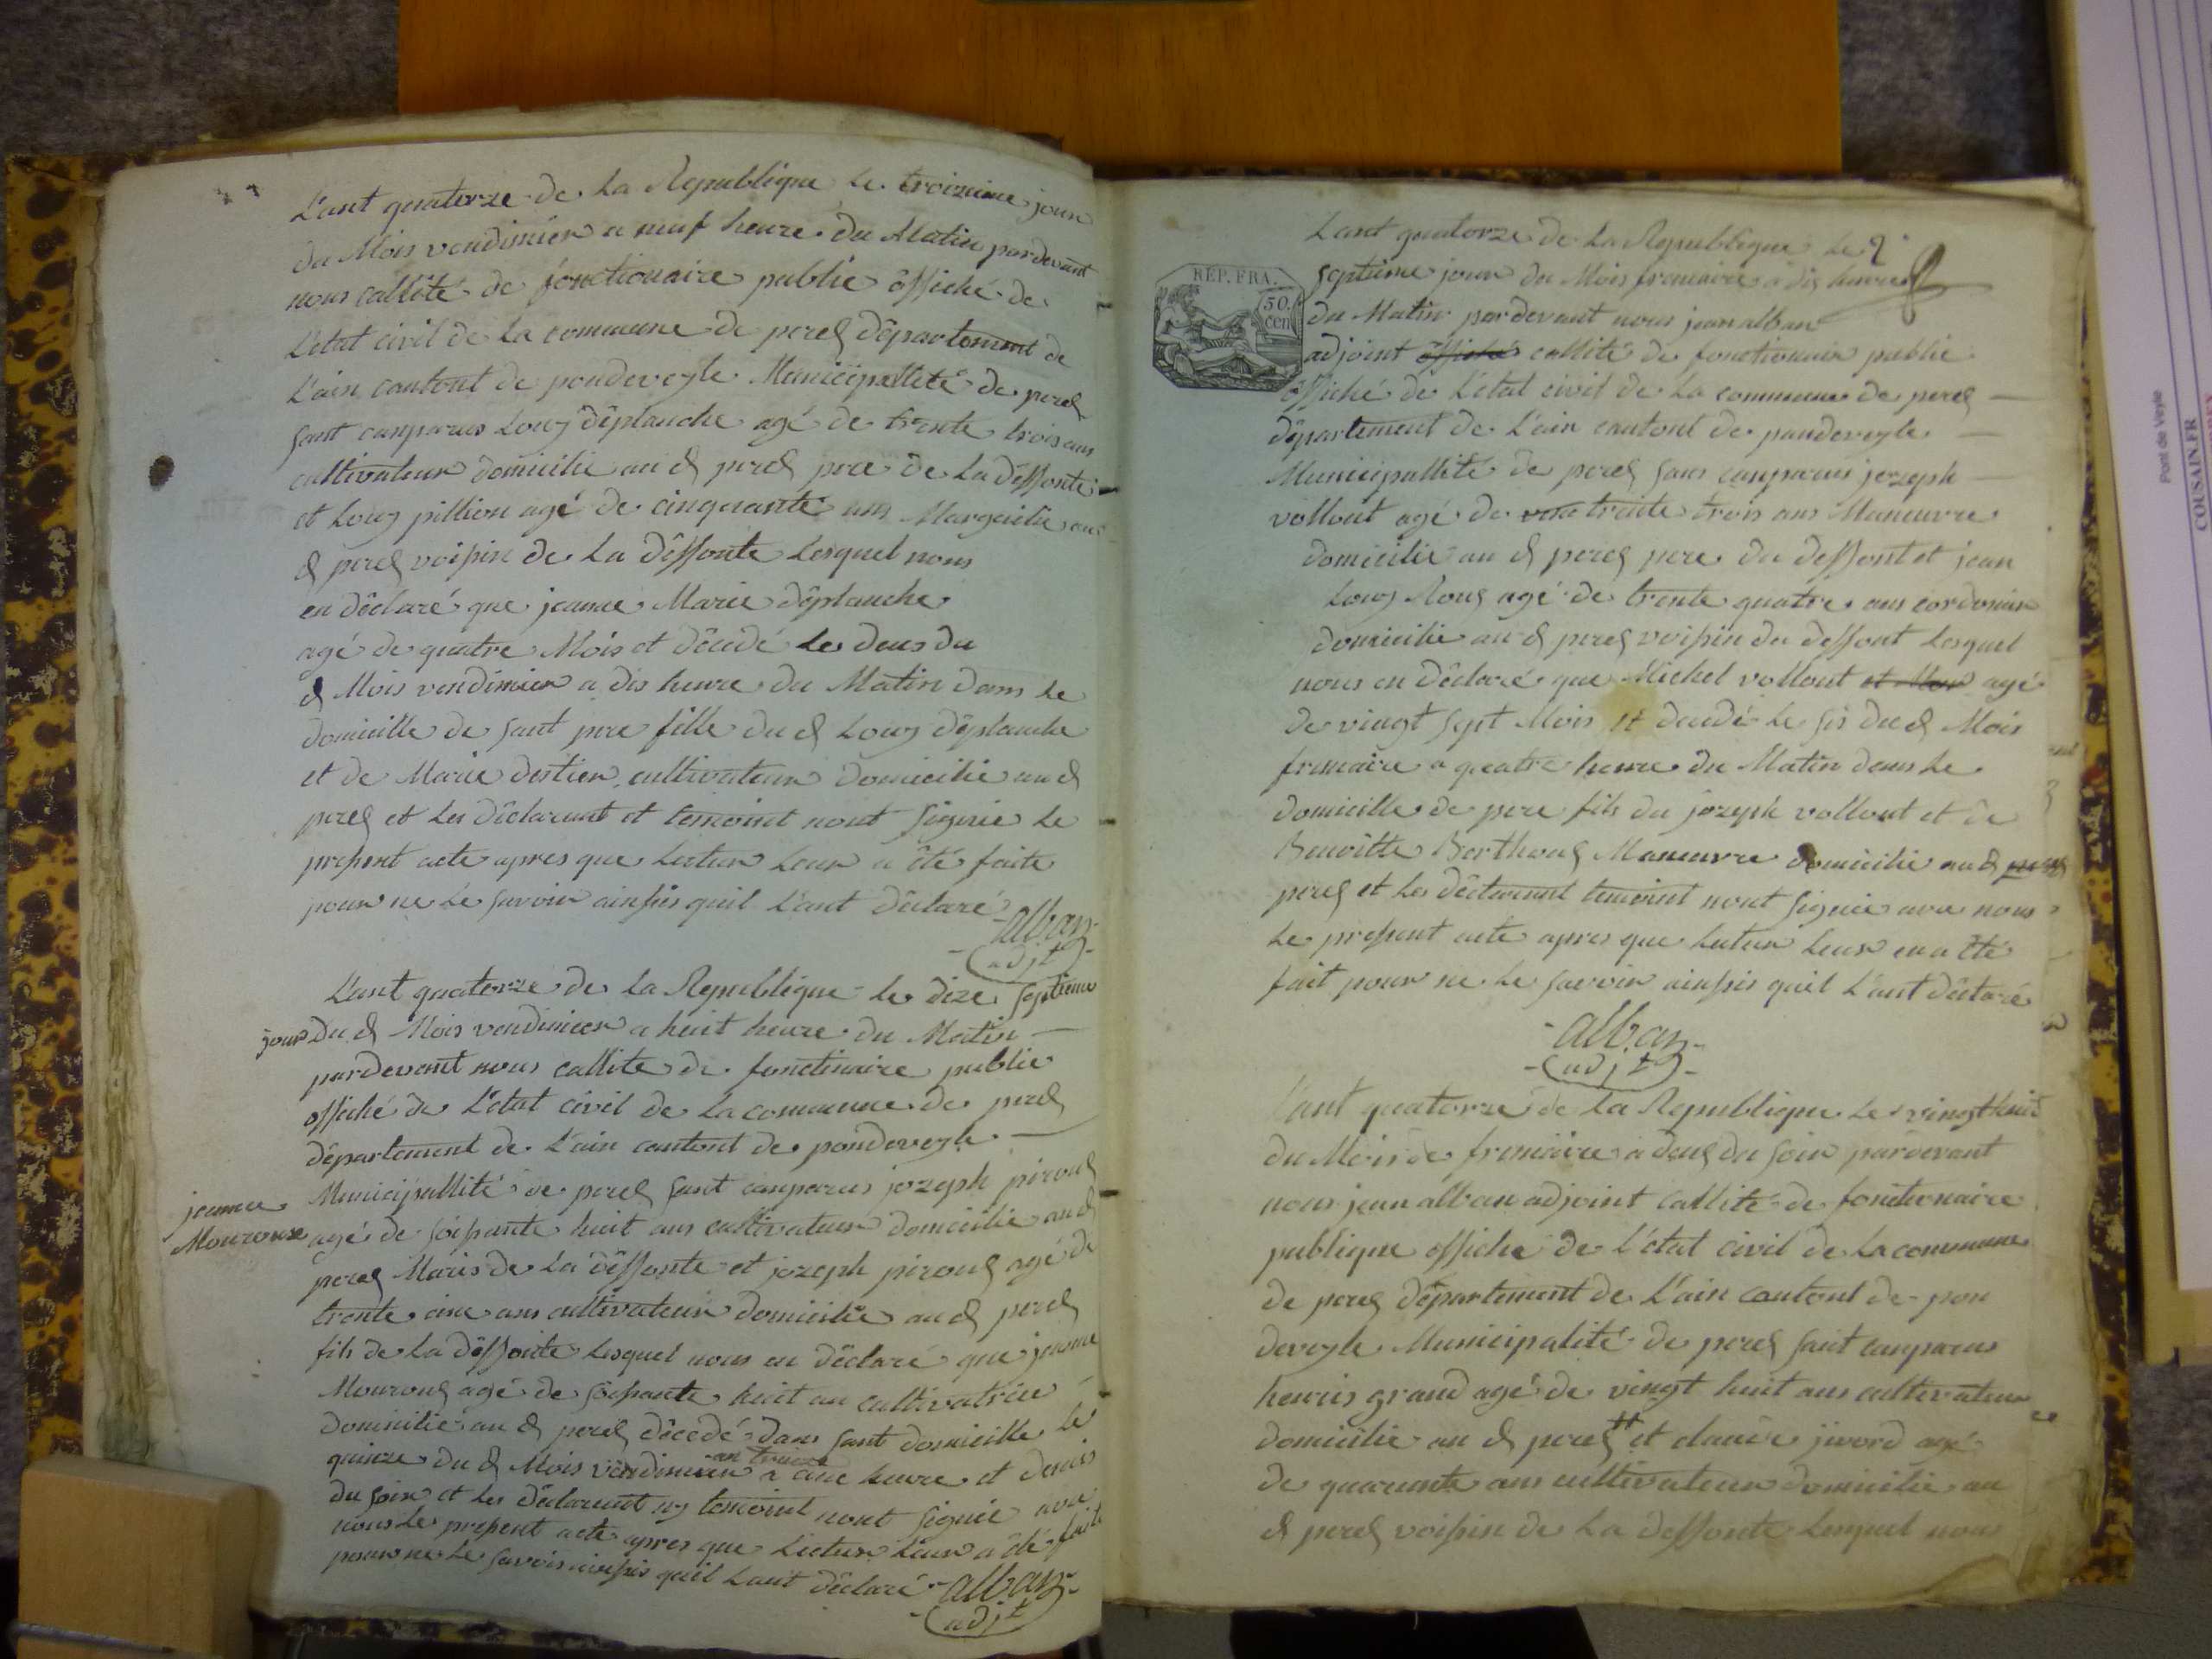 L'ant quatorze de La Republique Le troizieme jour
du Mois vendimier a neuf heure du Matin pardevant
nous callité de fonctionaire public offiché de
L'etat civil de La commune de perex département de
L'ain cantont de pondeveyle Municipallité de perex
sont conparus Louy déplanche agé de trente trois ans
cultivateur domicilie au d perex pere de La déffonte
et Louy pillion agé de cinquante ans Marguilie au
d perex voisin de La déffonte Lesquel nous
en déclaré que jeanne Marie déplanche
agé de quatre Mois et décédé Le deus du
d Mois vendimier a dis heure du Matin dans Le
domicille de sont pere fille du d Louy déplanche
et de Marie destien cultivateur domicilie au d
perex et Les déclarant et temoint nont signie Le
present acte apres que Lectur Leur a été faite
pour ne Le savoir ainsis quil L'ant déclaré
alban
adjt
L'ant quatorze de La Republique Le dize septieme
jour du d Mois vendimier a heuit heure du Matin
pardevant nous callite de fonctinaire public
offiché de L'état civil de La commune de perex
département de L'ain cantont de pondeveyle
Municipallité de perex sont conparus jozeph piroux
jeanne
Mouroux
agé de soisante huit ans cultivateur domicilie au d
perex Maris de La déffonte et jozeph piroux agé de
trente cinc ans cultivateur domicilie au d perex
fils de La déffonte Lesquel nous en déclaré que jeanne
Mouroux agé de soisante huit an cultivatrice
domicilie au d perex décédé dans sont domicille Le
quinze du d Mois vendimier a cinc heure et demis
du soir et Les déclarant temoint nont signie avec
nous Le present acte apres que Lectur Leur a été faite
pour ne Le savoir ainsis quil Lant déclaré
alban
adjt
Lant quatorze de La Republique Le
REP. FRA.
50.
cen
septieme jour du Mois fremaire a dix heure
du Matin pardevant nous jean alban
adjoint offiché callité de fonctionair public
offiché de L'état civil de La commune de perex
département de L'ain cantont de pondeveyle
Municipallité de perex sont conparus jozeph
vollout agé de trente trois ans Maneuvre
domicilie au d perex pere du deffont et jean
Louy Roux agé de trente quatre ans cordonier
domicilie au d perex voisin du deffont Lesquel
nous en déclaré que Michel vollout et Mour agé
de vingt sept Mois et decedé Le sis du d Mois
fremaire a quatre heure du Matin dans Le
domicille de pere fils du jozeph vollout et de
Benoitte Berthoux Maneuvre domicilie au d perex
perex et Les déclarant temoint nont signie avec nous
Le present acte apres que Lectur Leur en a été
fait pour ne Le savoir ainsis quil L'ant déclaré
alban
adjt
L'ant quatorze de La Republique Le vingt huit
du Mois de fremaire a deux du soir pardevant
nous jean alban adjoint callité de fonctionaire
publique offiché de L'état civil de La commune
de perex département de L'ain cantont de pon
deveyle Municipalité de perex sont conparus
henris grand agé de vingt huit ans cultivateur
domicilie au d perex et claude agé
de quarante ans cultivateur domicilie au
d perex voisin de La deffonte Lesquel nous
Pont de Veyle
COUSAIN.FR